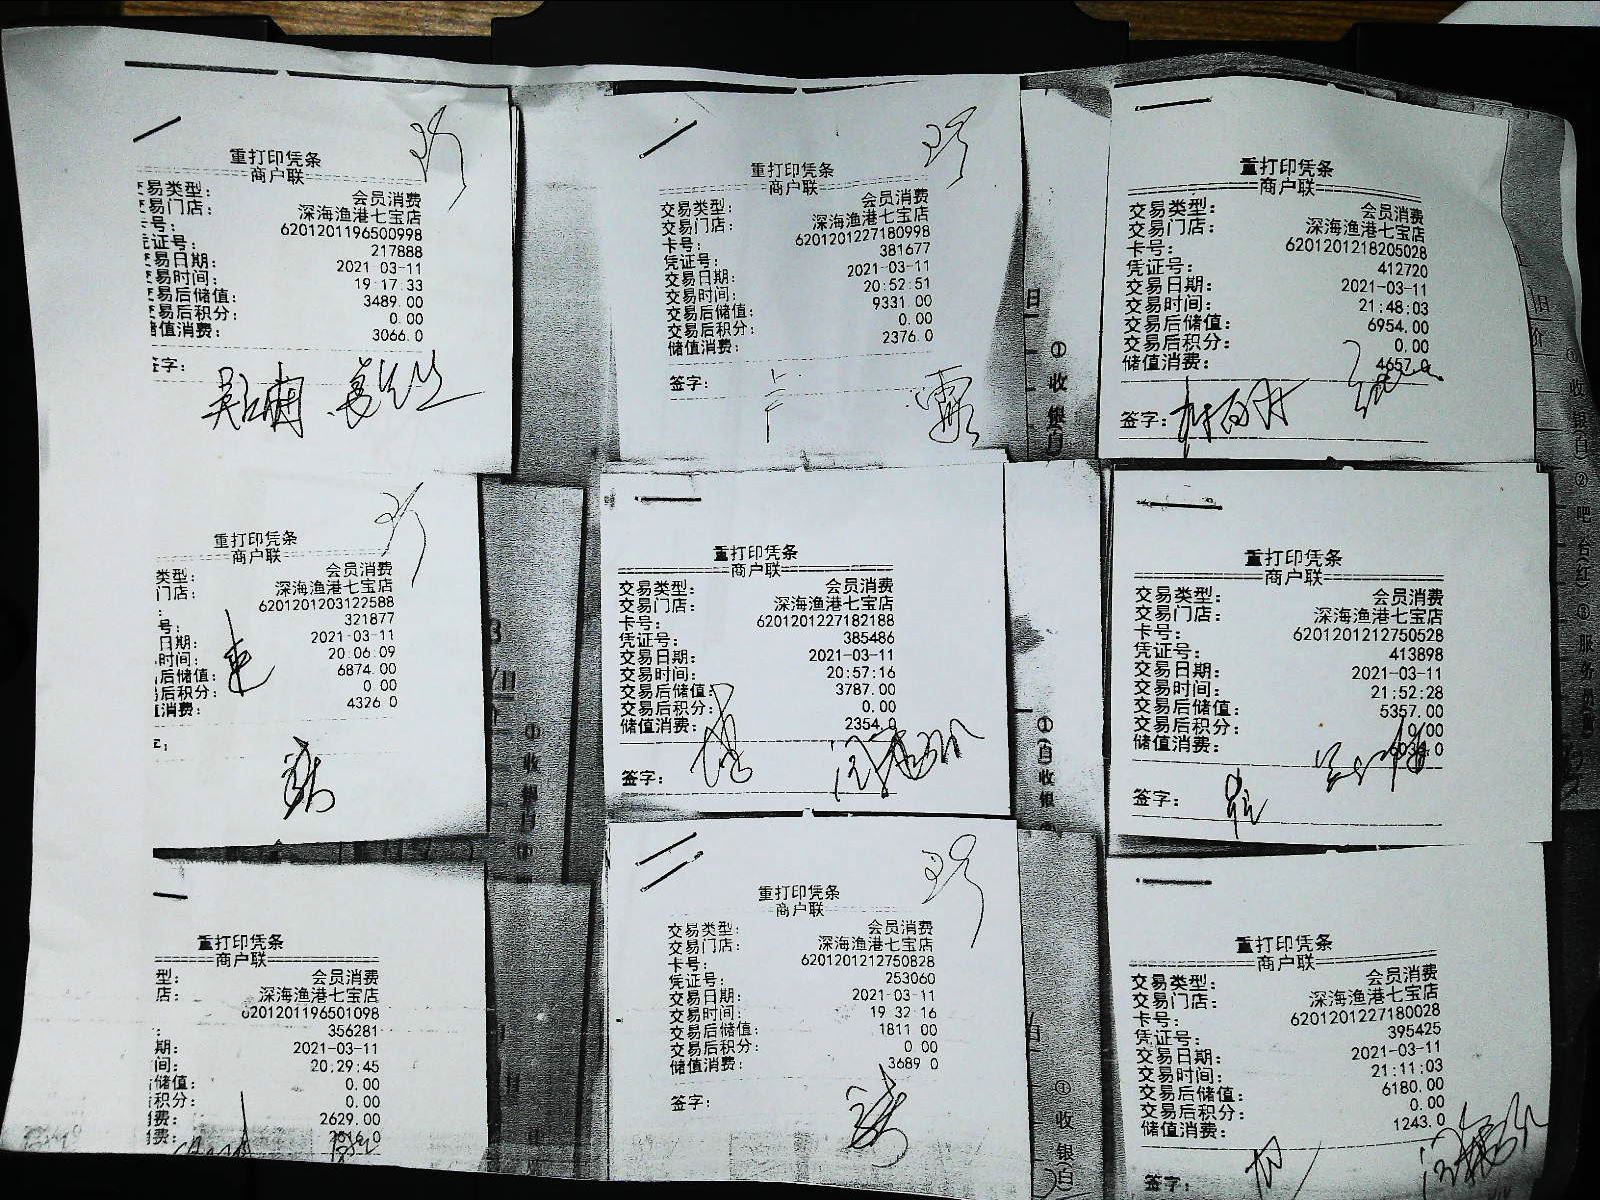 重打印凭条
商户联
易类型: 会员消费
易门店: 深海渔港七宝店
号: 6201201196500998
凭证号: 217888
交易日期: 2021-03-11
交易时间: 19:17:33
交易后储值: 3489.00
交易后积分: 0.00
储值消费: 3066.0
签字:
重打印凭条
商户联
交易类型: 会员消费
交易门店: 深海渔港七宝店
卡号: 6201201227180998
凭证号: 381677
交易日期: 2021-03-11
交易时间: 20:52:51
交易后储值: 9331.00
交易后积分: 0.00
储值消费: 2376.0
签字:
重打印凭条
商户联
交易类型: 会员消费
交易门店: 深海渔港七宝店
卡号: 6201201218205028
凭证号: 412720
交易日期: 2021-03-11
交易时间: 21:48:03
交易后储值: 6954.00
交易后积分: 0.00
储值消费: 4657.0
签字:
重打印凭条
商户联
类型: 会员消费
门店: 深海渔港七宝店
: 6201201203122588
号: 321877
日期: 2021-03-11
时间: 20:06:09
后储值: 6874.00
后积分: 0.00
消费: 4326.0
重打印凭条
商户联
交易类型: 会员消费
交易门店: 深海渔港七宝店
卡号: 6201201227182188
凭证号: 385486
交易日期: 2021-03-11
交易时间: 20:57:16
交易后储值: 3787.00
交易后积分: 0.00
储值消费: 2354.0
签字:
重打印凭条
商户联
交易类型: 会员消费
交易门店: 深海渔港七宝店
卡号: 6201201212750528
凭证号: 413898
交易日期: 2021-03-11
交易时间: 21:52:28
交易后储值: 5357.00
交易后积分: 0.00
储值消费:
签字:
重打印凭条
商户联
型: 会员消费
店: 深海渔港七宝店
6201201196501098
: 356281
期: 2021-03-11
间: 20:29:45
储值: 0.00
积分: 0.00
消费: 2629.00
消费:
重打印凭条
商户联
交易类型: 会员消费
交易门店: 深海渔港七宝店
卡号: 6201201212750828
凭证号: 253060
交易日期: 2021-03-11
交易时间: 19:32:16
交易后储值: 1811.00
交易后积分: 0.00
储值消费: 3689.0
签字:
重打印凭条
商户联
交易类型: 会员消费
交易门店: 深海渔港七宝店
卡号: 6201201227180028
凭证号: 395425
交易日期: 2021-03-11
交易时间: 21:11:03
交易后储值: 6180.00
交易后积分: 0.00
储值消费: 1243.0
签字:
①收银(白)
①收银(白)
①(白)收银
①收银(白)
①收银(白)②吧台(红)③服务